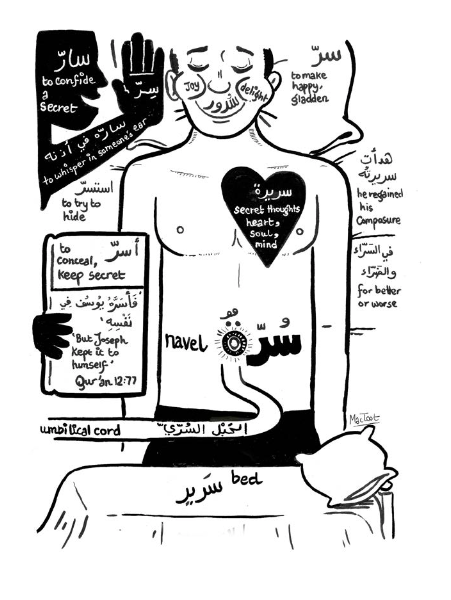 سارّ
to confide
a
secret
سرّ
سارّه في أذنه
to whisper in someone's ear
Joy
سرور
delight
سرّ
to make
happy,
gladden
استسرّ
to try to
hide
سريرة
secret thoughts
heart,
soul,
mind
هدأت
سريرته
he regained
his
composure
في السّرّاء
والضّرّاء
for better
or worse
to
conceal,
أسرّ
keep secret
فَأَسَرَّهَا يُوسُفُ فِي
نَفْسِهِ
'But Joseph
kept it to
himself'
Qur'an 12:77
navel
سرّ
umbilical cord
الحَبْل السُّرّيّ
MacToot
سَرير bed